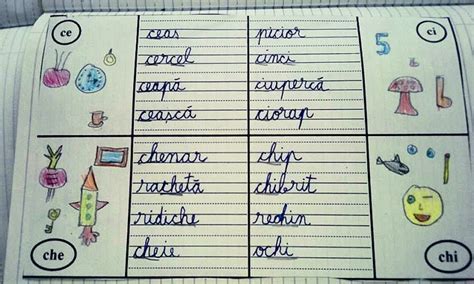 ce ceas picior ci
cercel cinci 5
ceapă ciupercă
ceașcă ciorap
chenar chip
rachetă chibrit
ridiche rechin
che cheie ochi chi